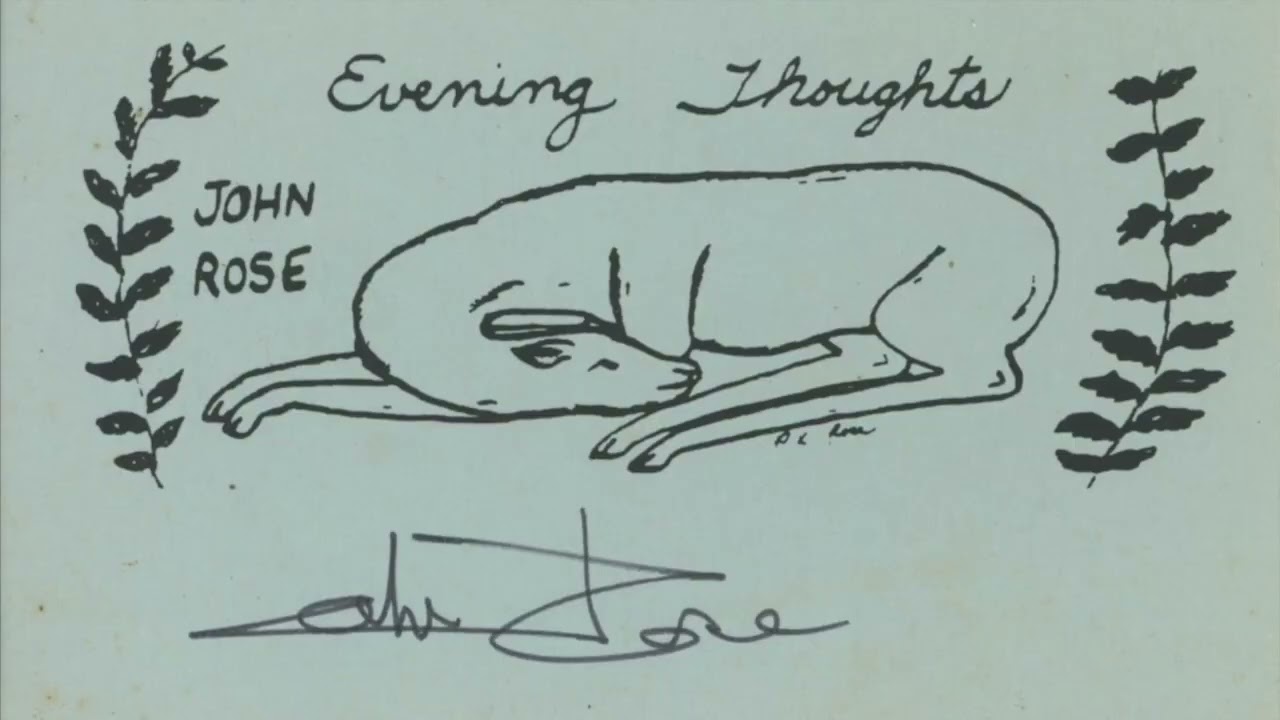 Evening Thoughts
JOHN
ROSE
John Rose